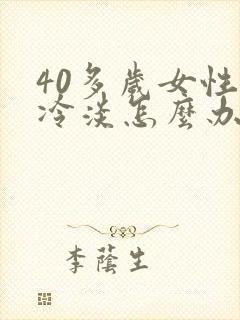 40多歲女性
冷淡怎麼办
李蔭生